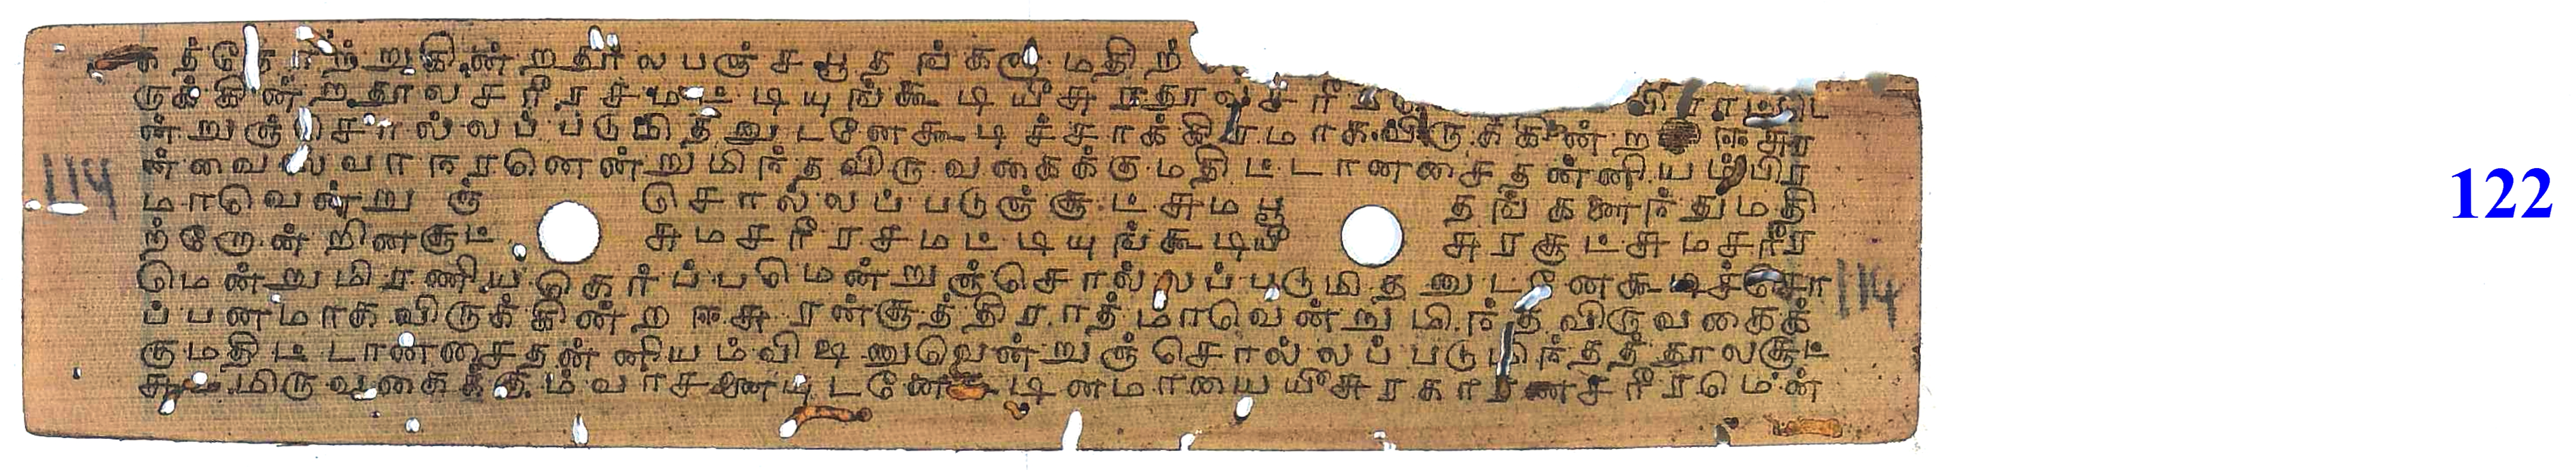 கத்தோற்றுகின்றதூலபஞ்சபூதங்களுமதிற்
ருக்கின்றதூலசரீரசமட்டியுங்கூடியீசுரதூலசரீர விராட்டெ
ன்றுஞ்சொல்லப்படுமிதனுடனேகூடிச்சாக்கிரமாகவிருக்கின்ற ஈசுர
ன்வைஸ்வாநரனென்றுமிந்தவிருவகைக்குமதிட்டானசைதன்னியம்பிர
மாவென்று ஞ் சொல்லப்படுஞ்சூட்சுமபூ தங்களைந்துமதி
ற்றோன்றினசூட் சுமசரீரசமட்டியுங்கூடியீ சுரசூட்சுமசரீர
மென்றுமிரணியகெர்ப்பமென்றுஞ்சொல்லப்படுமிதனுடனேகூடிச்சொ
ப்பனமாகவிருக்கின்ற ஈசுரன்சூத்திராத்மாவென்றுமிந்தவிருவகைக்
குமதிட்டானசைதன்னியம்விஷ்ணுவென்றுஞ்சொல்லப்படுமிந்தத்தூலசூட்
சுமமிருவகைக்கும்வாசனையுடனேகூடினமாயையீசுரகாரணசரீரமென்
114
114
122